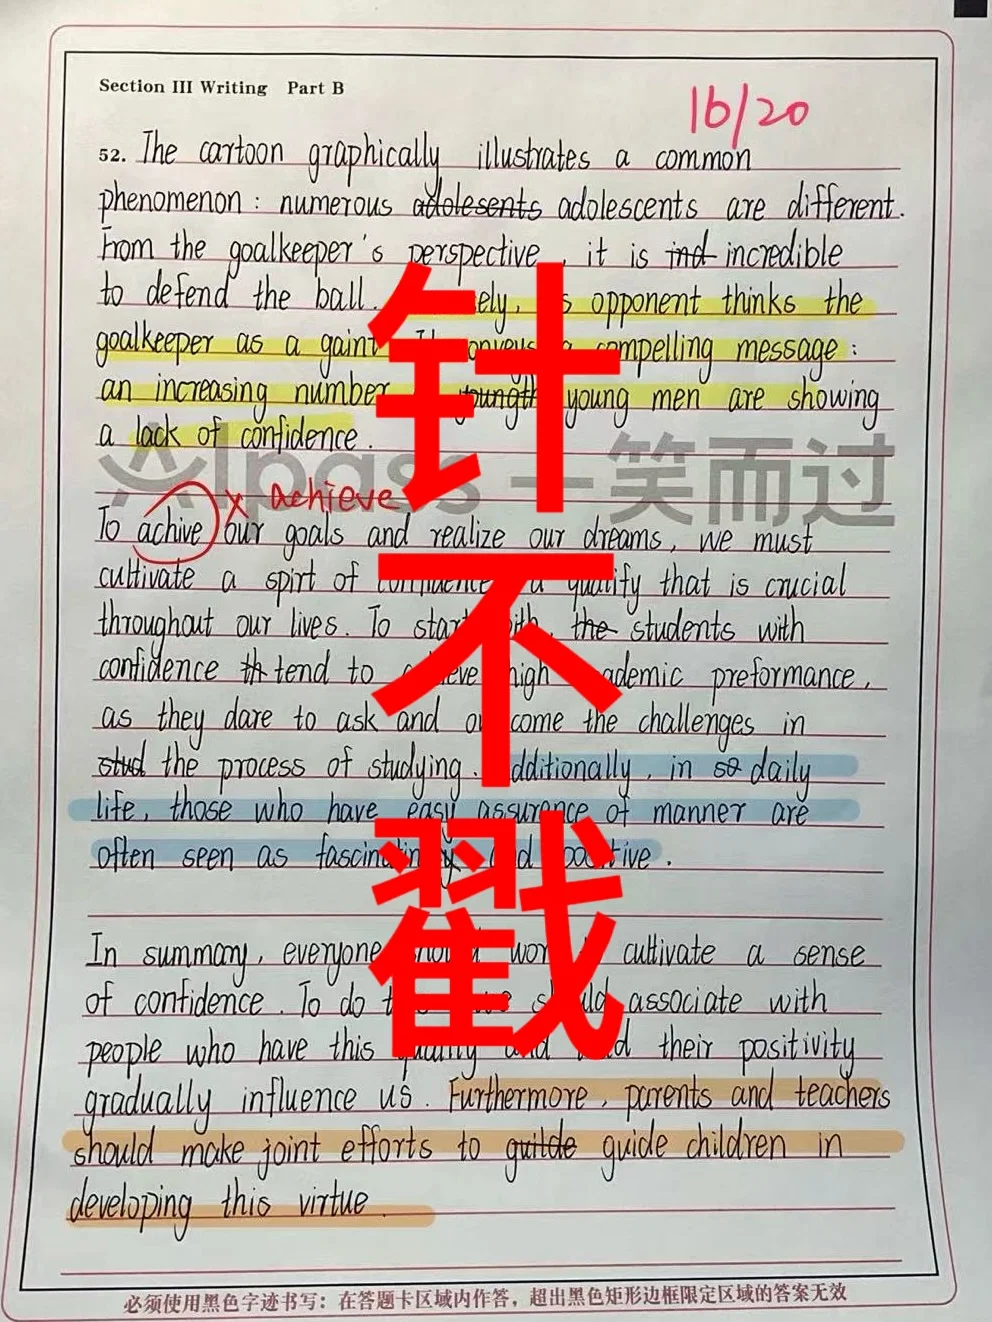 Section III Writing Part B
16/20
52. The cartoon graphically illustrates a common
phenomenon: numerous adolesents adolescents are different.
From the goalkeeper's perspective, it is ind incredible
to defend the ball. opponent thinks the
goalkeeper as a gaint compelling message:
an increasing number youngth young men are showing
a lack of confidence.
Alpass 一笑而过
achieve
To achive our goals and realize our dreams, we must
cultivate a spirt of a quality that is crucial
throughout our lives. To start with, the students with
confidence th tend to high preformance,
as they dare to ask and the challenges in
stud the process of studying. Additionally, in so daily
life, those who have easy assurance of manner are
often seen as and positive.
In summary, everyone cultivate a sense
of confidence. To do should associate with
people who have this quality and their positivity
gradually influence us. Furthermore, parents and teachers
should make joint efforts to guitde guide children in
developing this virtue
必须使用黑色字迹书写：在答题卡区域内作答，超出黑色矩形边框限定区域的答案无效
针不戳